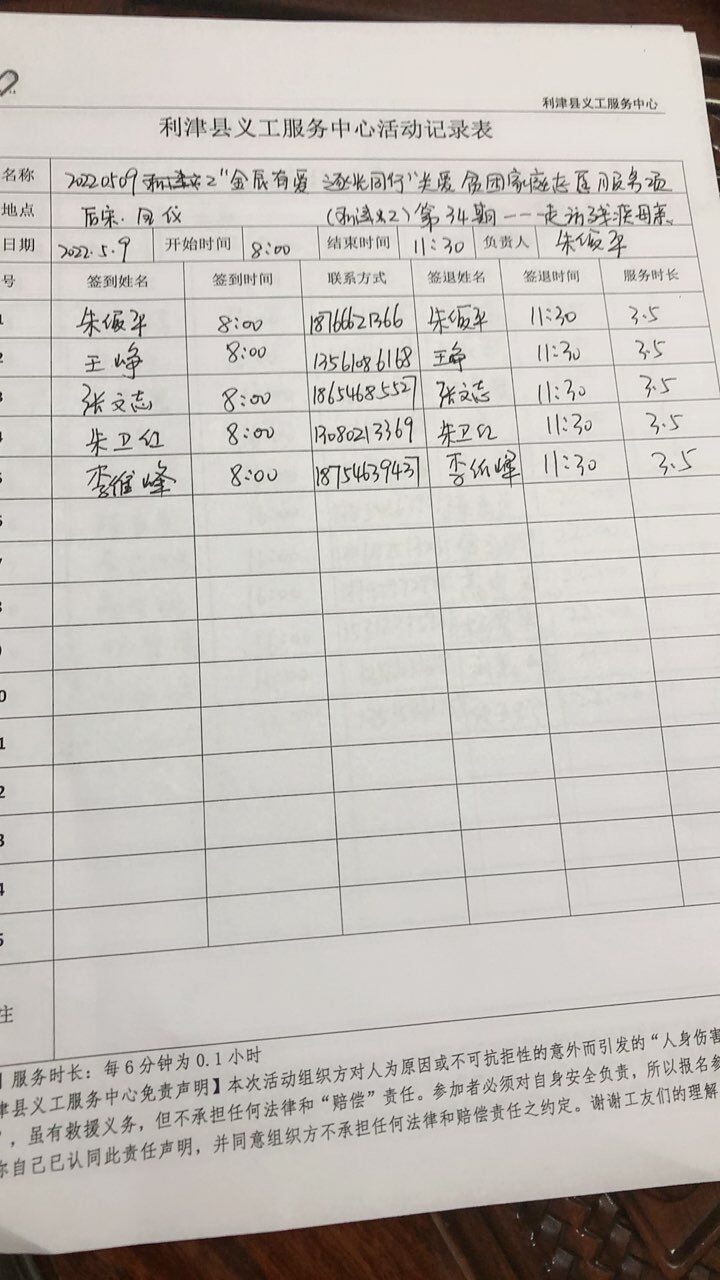 利津县义工服务中心
利津县义工服务中心活动记录表
名称 20220509 "金辰有爱 逐光同行"关爱贫困家庭志愿服务项
地点 后宋. (利津义工)第34期——走访残疾母亲
日期 2022.5.9 开始时间 8:00 结束时间 11:30 负责人 朱俊平
号 签到姓名 签到时间 联系方式 签退姓名 签退时间 服务时长
1 朱俊平 8:00 18766621366 朱俊平 11:30 3.5
2 王峥 8:00 13561086168 王峥 11:30 3.5
3 张文志 8:00 18654685527 张文志 11:30 3.5
4 朱卫红 8:00 13080213369 朱卫红 11:30 3.5
5 李维峰 8:00 18754639437 李维峰 11:30 3.5
6
7
8
9
0
1
2
3
4
5
注
服务时长：每6分钟为0.1小时
津县义工服务中心免责声明】本次活动组织方对人为原因或不可抗拒性的意外而引发的“人身伤害
”，虽有救援义务，但不承担任何法律和“赔偿”责任。参加者必须对自身安全负责，所以报名参
你自己已认同此责任声明，并同意组织方不承担任何法律和赔偿责任之约定。谢谢工友们的理解